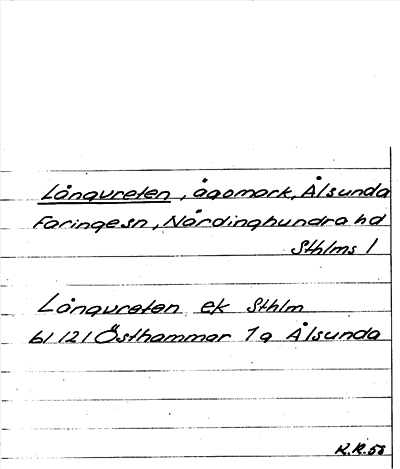 Långvreten, ägomark, Ålsunda
Faringe sn, Närdinghundra hd
Sthlms l
Långvreten ek Sthlm
bl 121 Östhammar 7a Ålsunda
K.R. 55